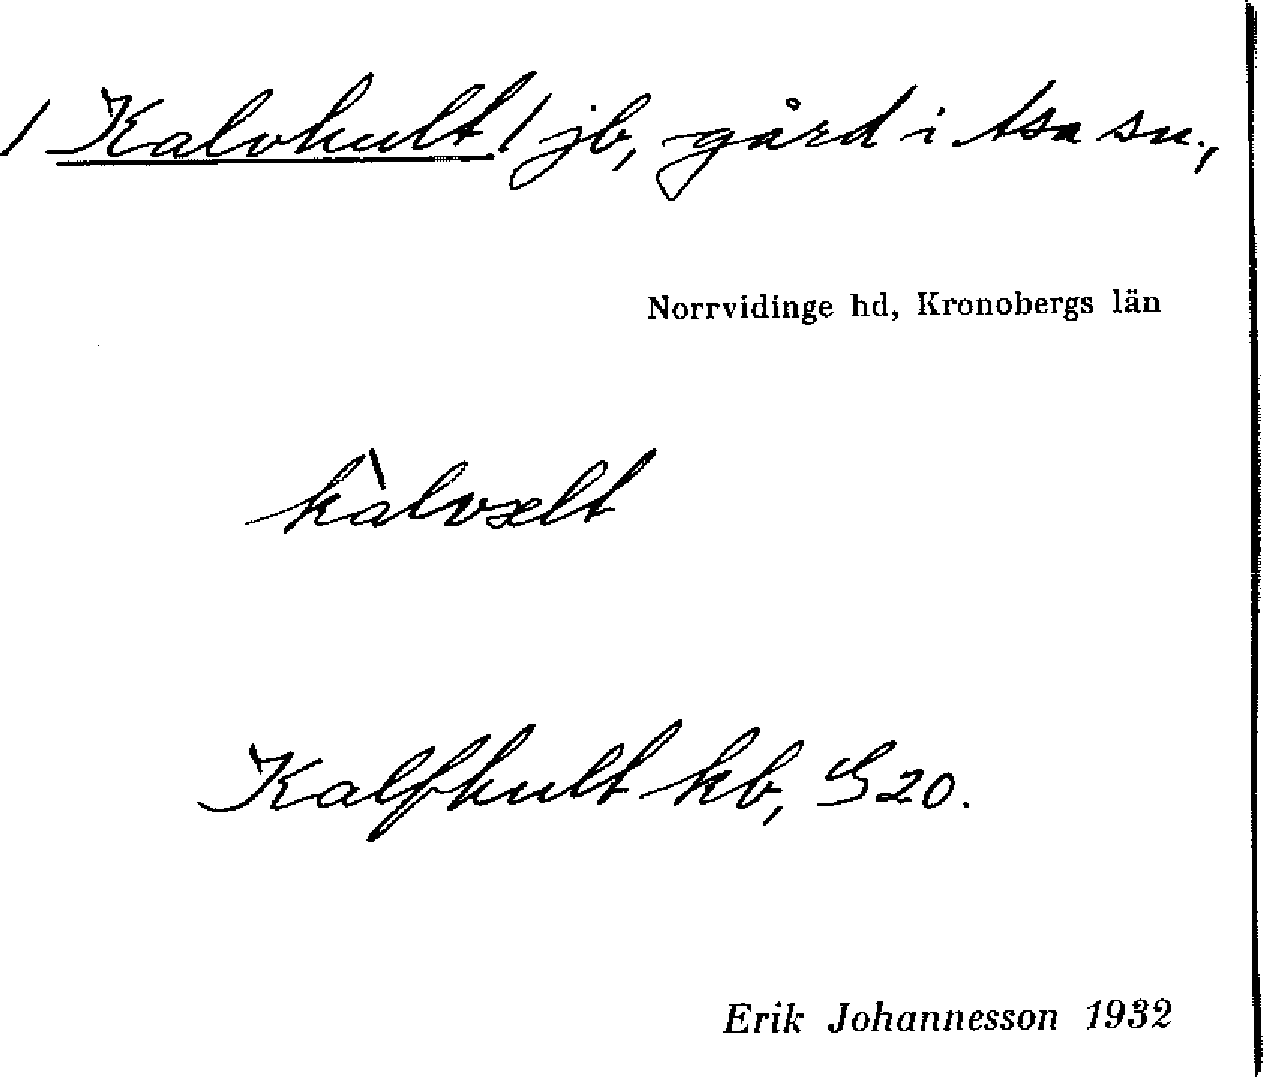 / Kalvhult / jb, gård i tsa sn.,
Norrvidinge hd, Kronobergs län
kàlvælt
Kalfhult kb, S 20.
Erik Johannesson 1932